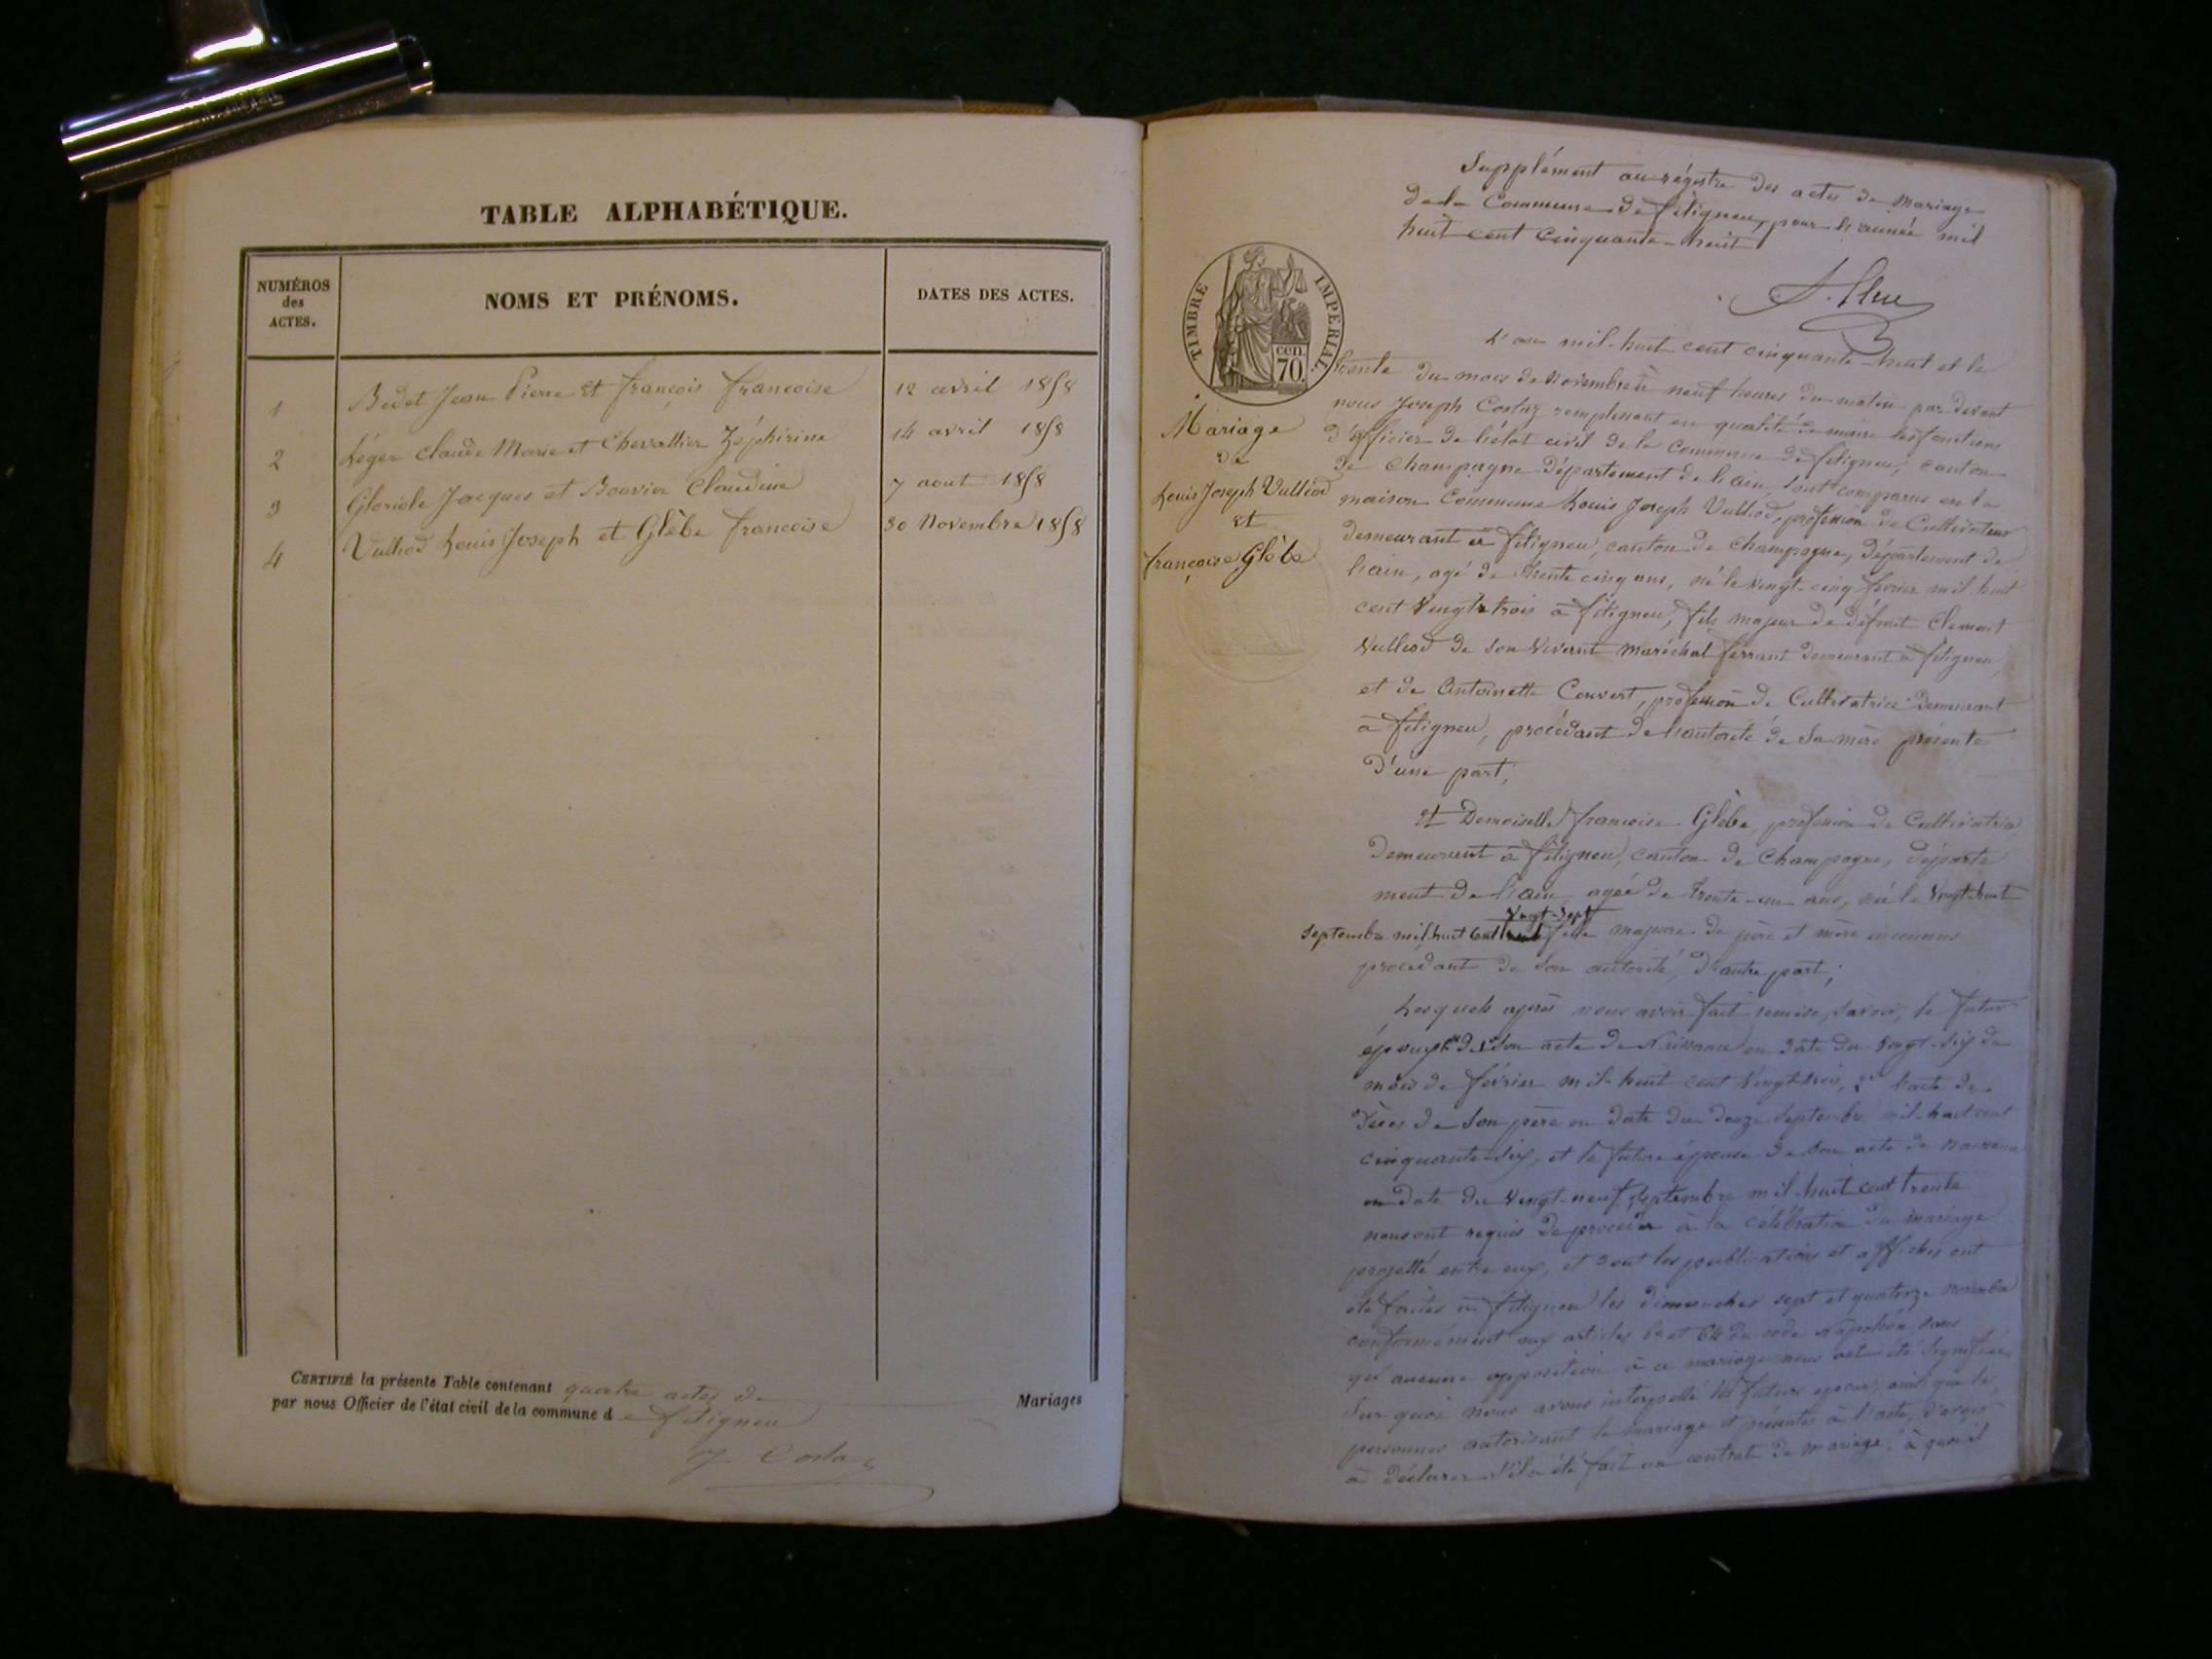 TABLE ALPHABÉTIQUE.
NUMÉROS des ACTES.
NOMS ET PRÉNOMS.
DATES DES ACTES.
1 Bedet Jean Pierre et françois francoise 12 avril 1858
2 Léger Claude Marie et Chevallier Zéphirine 14 avril 1858
3 Gloriole Jacques et Bouvier Claudine 7 aout 1858
4 Vulliod Louis Joseph et Glèbe francoise 30 Novembre 1858
CERTIFIÉ la présente Table contenant quatre actes de Mariages
par nous Officier de l'état civil de la commune de fitigneu
J Costaz
Supplément au régistre des actes de Mariage
de la Commune de fitigneu, pour l'année mil
huit cent cinquante-huit
TIMBRE IMPERIAL.
cen. 70.
Mariage
de
Louis Joseph Vulliod
et
françoise Glèbe
L'an mil-huit cent cinquante-huit et le
trente du mois de Novembre à neuf heures du matin par devant
nous Joseph Costaz remplissant en qualité de maire les fonctions
d'officier de l'état civil de la commune de fitigneu, canton
de Champagne département de l'ain, sont comparus en la
maison Commune Louis Joseph Vulliod, profession de Cultivateur
demeurant à fitigneu, canton de Champagne, département de
l'ain, agé de trente cinq ans, né le vingt-cinq février mil-huit
cent Vingt trois à fitigneu, fils majeur de défunt Clement
Vulliod de son Vivant maréchal ferrant demeurant à fitigneu
et de Antoinette Convert, profession de Cultivatrice demeurant
à fitigneu, procédant de l'autorité de sa mère présente
d'une part;
Et Demoiselle francoise Glèbe, profession de Cultivatrice
demeurant à fitigneu, canton de Champagne, départe
ment de l'ain, agée de trente-un ans, née le Vingt-huit
Vingt-sept
septembre mil huit Cent fille majeure de père et mère inconnus
procédant de son autorité, d'autre part;
Lesquels après nous avoir fait remise, savoir, le futur
époux 1° de son acte de Naissance en date du Vingt-six du
mois de février mil-huit cent Vingt trois, 2° l'acte de
décès de son père en date du douze septembre mil-huit cent
cinquante-six, et la future épouse de son acte de naissance
en date du Vingt-neuf septembre mil-huit cent trente
nous ont requis de procéder à la célébration du mariage
projetté entre eux, et dont les publications et affiches ont
été faites à fitigneu les dimanches sept et quatorze novembre
conformément aux articles 63 et 64 du code Napoléon, sans
qu'aucune opposition à ce mariage nous ait été signifiée
sur quoi nous avons interpellé les futurs époux, ainsi que les
personnes autorisant le mariage et présentes à l'acte, d'avoir
à déclarer s'il a été fait un contrat de mariage, à quoi il